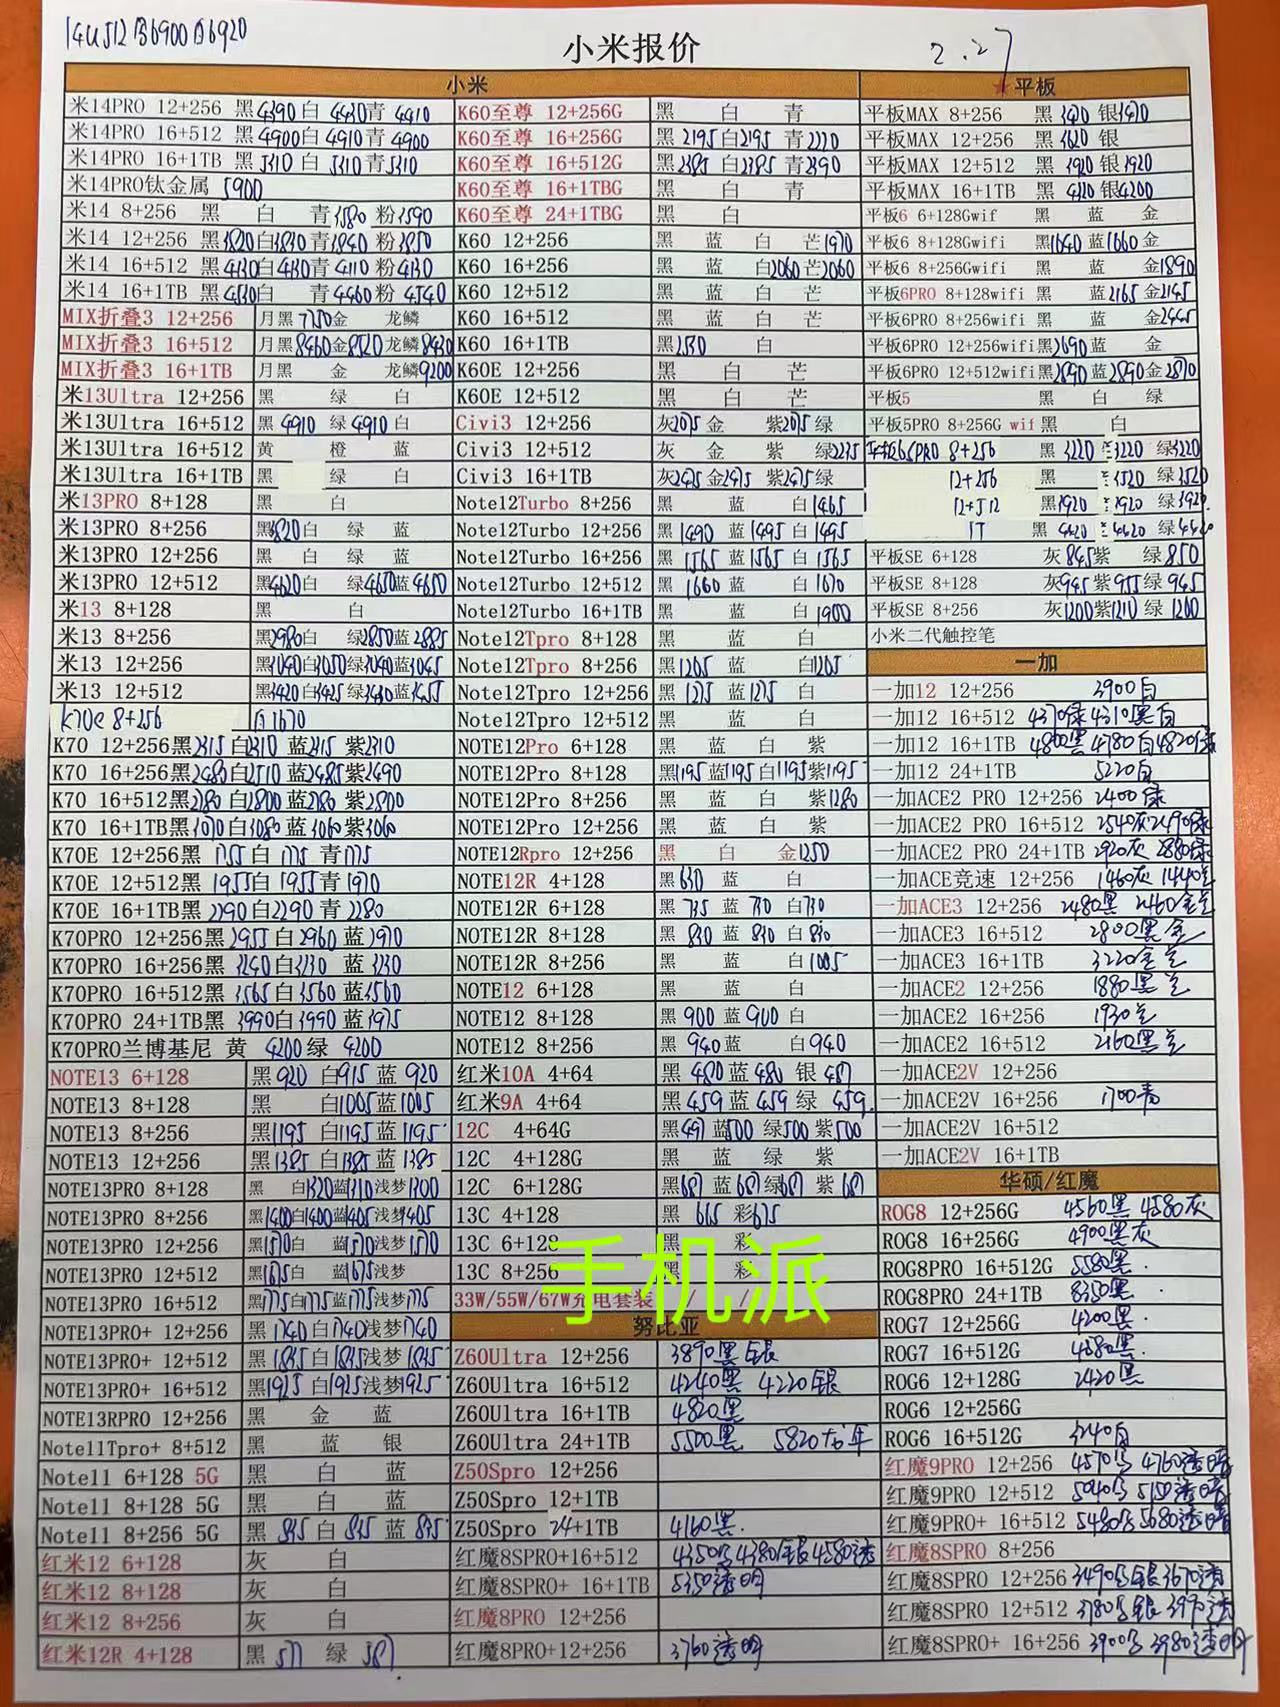 14U512黑6900白6920
小米报价
2.27
小米
米14PRO 12+256 黑4390白 4430青 4410
米14PRO 16+512 黑4900白4910青 4900
米14PRO 16+1TB 黑5310 白 5310青5310
米14PRO钛金属 5900
米14 8+256 黑 白 青3580 粉3590
米14 12+256 黑3820白3830青3840 粉3850
米14 16+512 黑4130白4130青4110 粉4130
米14 16+1TB 黑4530白 青4460粉 4540
MIX折叠3 12+256 月黑7750金 龙鳞
MIX折叠3 16+512 月黑8460金8520龙鳞8430
MIX折叠3 16+1TB 月黑 金 龙鳞9200
米13Ultra 12+256 黑 绿 白
米13Ultra 16+512 黑 4910 绿 4910 白
米13Ultra 16+512 黄 橙 蓝
米13Ultra 16+1TB 黑 绿 白
米13PRO 8+128 黑 白
米13PRO 8+256 黑3820白 绿 蓝
米13PRO 12+256 黑 白 绿 蓝
米13PRO 12+512 黑4620白 绿4650蓝4650
米13 8+128 黑 白
米13 8+256 黑2980白 绿2850蓝2885
米13 12+256 黑3040白3050绿3040蓝3045
米13 12+512 黑3420白3425绿3430蓝3455
K70e 8+256 白1670
K70 12+256黑2315白2310 蓝2315 紫2310
K70 16+256黑2480白2510 蓝2485紫2490
K70 16+512黑2780 白2800 蓝2780 紫2800
K70 16+1TB黑3070白3080 蓝3060紫3060
K70E 12+256黑 1755白 1775 青1775
K70E 12+512黑 1955白 1955青 1970
K70E 16+1TB黑 2290白2290 青 2280
K70PRO 12+256黑 2955 白2960 蓝2970
K70PRO 16+256黑 3240白3230 蓝 3230
K70PRO 16+512黑 3565白3560 蓝3560
K70PRO 24+1TB黑 3990白3990 蓝3975
K70PRO兰博基尼 黄 4200绿 4200
NOTE13 6+128 黑920 白915蓝 920
NOTE13 8+128 黑 白1005蓝1005
NOTE13 8+256 黑1195 白1195蓝 1195
NOTE13 12+256 黑1385 白1385蓝 1385
NOTE13PRO 8+128 黑 白1320蓝1310浅梦1300
NOTE13PRO 8+256 黑1400白1400蓝1405浅梦1405
NOTE13PRO 12+256 黑1570白 蓝1570浅梦1570
NOTE13PRO 12+512 黑1675白 蓝1675浅梦
NOTE13PRO 16+512 黑1775白1775蓝1775浅梦1775
NOTE13PRO+ 12+256 黑 1740白1740浅梦1740
NOTE13PRO+ 12+512 黑 1835白1835浅梦 1835
NOTE13PRO+ 16+512 黑1925 白1925浅梦1925
NOTE13RPRO 12+256 黑 金 蓝
Note11Tpro+ 8+512 黑 蓝 银
Note11 6+128 5G 黑 白 蓝
Note11 8+128 5G 黑 白 蓝
Note11 8+256 5G 黑 835 白 835 蓝 835
红米12 6+128 灰 白
红米12 8+128 灰 白
红米12 8+256 灰 白
红米12R 4+128 黑 577 绿 587
K60至尊 12+256G 黑 白 青
K60至尊 16+256G 黑 2195 白2195 青2220
K60至尊 16+512G 黑2385 白2385 青2390
K60至尊 16+1TBG 黑 白 青
K60至尊 24+1TBG 黑 白
K60 12+256 黑 蓝 白 芒1970
K60 16+256 黑 蓝 白2060芒2060
K60 12+512 黑 蓝 白 芒
K60 16+512 黑 蓝 白 芒
K60 16+1TB 黑2530 白
K60E 12+256 黑 白 芒
K60E 12+512 黑 白 芒
Civi3 12+256 灰2075 金 紫2075绿
Civi3 12+512 灰 金 紫 绿2275
Civi3 16+1TB 灰2475 金2475 紫2475绿
Note12Turbo 8+256 黑 蓝 白1465
Note12Turbo 12+256 黑1490 蓝1495白1495
Note12Turbo 16+256 黑 1565 蓝1565 白 1565
Note12Turbo 12+512 黑 1660 蓝 白 1670
Note12Turbo 16+1TB 黑 蓝 白1900
Note12Tpro 8+128 黑 蓝 白
Note12Tpro 8+256 黑1265 蓝 白1265
Note12Tpro 12+256 黑 1275 蓝1275 白
Note12Tpro 12+512 黑 蓝 白
NOTE12Pro 6+128 黑 蓝 白 紫
NOTE12Pro 8+128 黑1195蓝1195白1195紫1195
NOTE12Pro 8+256 黑 蓝 白 紫1280
NOTE12Pro 12+256 黑 蓝 白 紫
NOTE12Rpro 12+256 黑 白 金1250
NOTE12R 4+128 黑630 蓝 白
NOTE12R 6+128 黑 735 蓝 730 白730
NOTE12R 8+128 黑 830 蓝 830 白 830
NOTE12R 8+256 黑 蓝 白1005
NOTE12 6+128 黑 蓝 白
NOTE12 8+128 黑 900 蓝900 白
NOTE12 8+256 黑 940蓝 白940
红米10A 4+64 黑 480 蓝 480 银 487
红米9A 4+64 黑 459 蓝 459 绿 459
12C 4+64G 黑491 蓝500 绿500 紫500
12C 4+128G 黑 蓝 绿 紫
12C 6+128G 黑687 蓝 687绿687 紫 687
13C 4+128 黑 665 彩675
13C 6+128 黑 彩
13C 8+256 黑 彩
33W/55W/67W充电套装 / / /
努比亚
Z60Ultra 12+256 3890黑银
Z60Ultra 16+512 4240黑 4220银
Z60Ultra 16+1TB 4820黑
Z60Ultra 24+1TB 5500黑 5820龙年
Z50Spro 12+256
Z50Spro 12+1TB
Z50Spro 24+1TB 4160黑
红魔8SPRO+16+512 4350黑4380银4580透
红魔8SPRO+ 16+1TB 5350透明
红魔8PRO 12+256
红魔8PRO+12+256 3760透明
★平板
平板MAX 8+256 黑 3420 银3420
平板MAX 12+256 黑 3620 银
平板MAX 12+512 黑 3920 银3920
平板MAX 16+1TB 黑 4220 银4200
平板6 6+128Gwif 黑 蓝 金
平板6 8+128Gwifi 黑1640 蓝1660 金
平板6 8+256Gwifi 黑 蓝 金1890
平板6PRO 8+128wifi 黑 蓝2165 金2145
平板6PRO 8+256wifi 黑 蓝 金2445
平板6PRO 12+256wifi黑2690蓝 金
平板6PRO 12+512wifi黑2890 蓝2890金2870
平板5 黑 白 绿
平板5PRO 8+256G wif 黑 白
平板6SPRO 8+256 黑 3220 3220 绿3220
12+256 黑 3520 绿3520
12+512 黑3920 3920 绿3920
1T 黑 4420 4420 绿4420
平板SE 6+128 灰 845紫 绿850
平板SE 8+128 灰945紫 955绿 945
平板SE 8+256 灰1200紫1210 绿 1200
小米二代触控笔
一加
一加12 12+256 3900白
一加12 16+512 4370绿 4310黑白
一加12 16+1TB 4800黑 4780白4820绿
一加12 24+1TB 5220白
一加ACE2 PRO 12+256 2400绿
一加ACE2 PRO 16+512 2540灰2490绿
一加ACE2 PRO 24+1TB 2920灰 2880绿
一加ACE竞速 12+256 1460灰 1440兰
一加ACE3 12+256 2480黑 2460金兰
一加ACE3 16+512 2800黑金
一加ACE3 16+1TB 3220金兰
一加ACE2 12+256 1880黑兰
一加ACE2 16+256 1930兰
一加ACE2 16+512 2160黑兰
一加ACE2V 12+256
一加ACE2V 16+256 1700青
一加ACE2V 16+512
一加ACE2V 16+1TB
华硕/红魔
ROG8 12+256G 4560黑 4580灰
ROG8 16+256G 4900黑灰
ROG8PRO 16+512G 5580黑
ROG8PRO 24+1TB 8350黑
ROG7 12+256G 4200黑
ROG7 16+512G 4580黑
ROG6 12+128G 2420黑
ROG6 12+256G
ROG6 16+512G 3240白
红魔9PRO 12+256 4570黑 4760透暗
红魔9PRO 12+512 5040黑 5150透暗
红魔9PRO+ 16+512 5480黑 5680透暗
红魔8SPRO 8+256
红魔8SPRO 12+256 3490黑银3670透
红魔8SPRO 12+512 3780黑银 3970透
红魔8SPRO+ 16+256 3900黑 3980透明
手机派